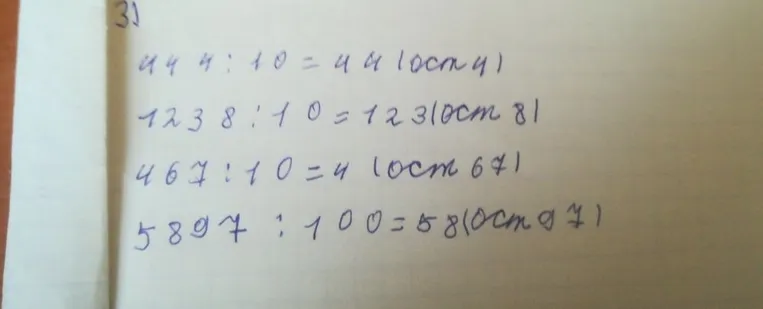 3)
444:10=44(ост 4)
1238:10=123(ост 8)
467:10=4(ост 67)
5897:100=58(ост 97)